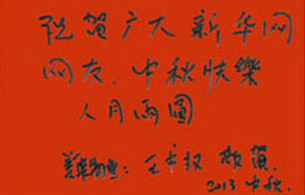 祝贺广大新华网
网友、中秋快樂
人月兩圓
王 敬賀
2013 中秋.